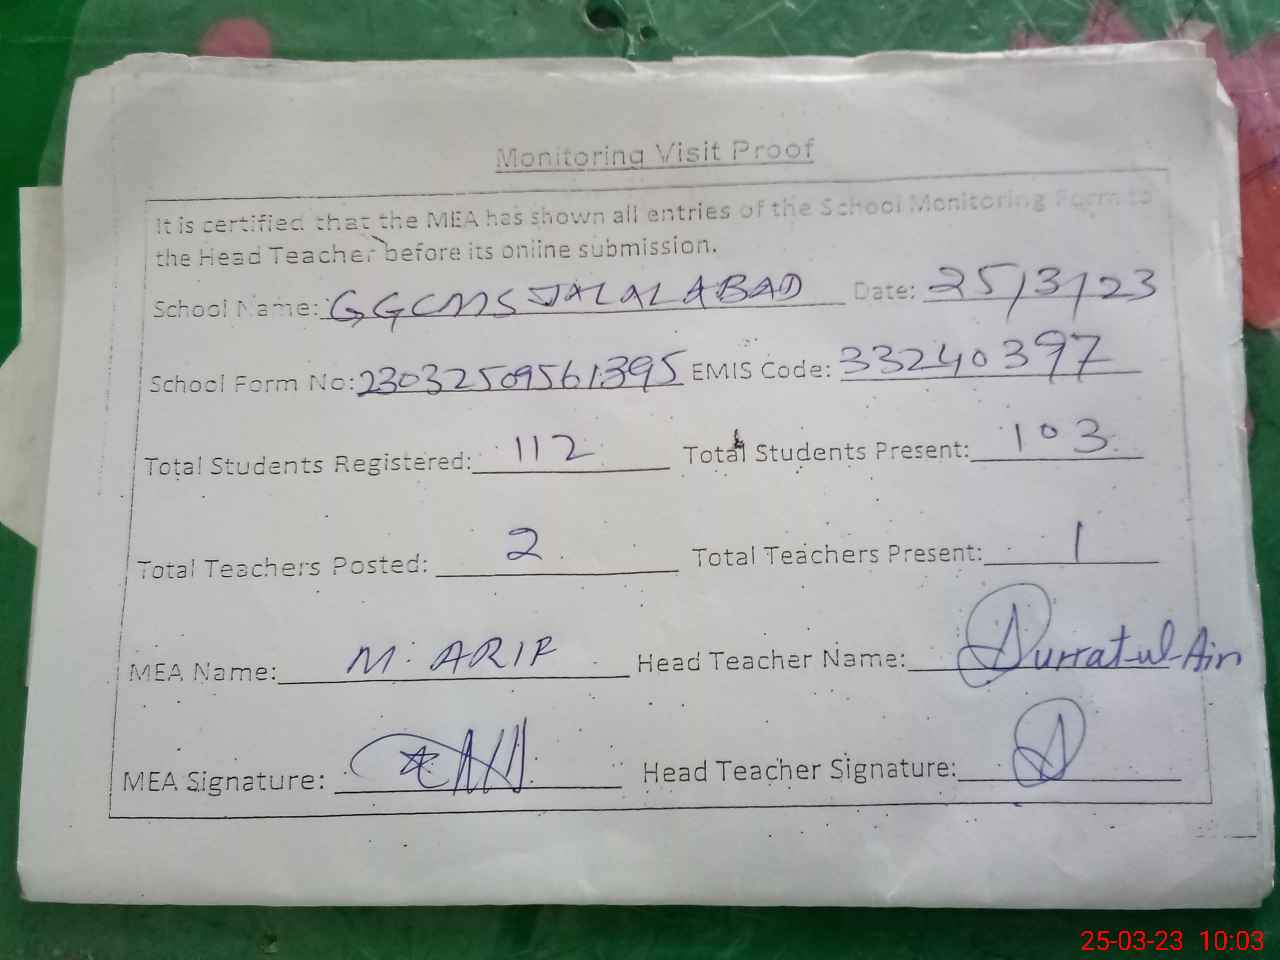 Monitoring Visit Proof
It is certified that the MEA has shown all entries of the School Monitoring Form to
the Head Teacher before its online submission.
School Name: GGCMS JALALABAD Date: 25/3/23
School Form No: 23032509561395 EMIS Code: 33240397
Total Students Registered: 112 Total Students Present: 103
Total Teachers Posted: 2 Total Teachers Present: 1
MEA Name: M. ARIF Head Teacher Name: Durrat-ul-Ain
MEA Signature: Head Teacher Signature:
25-03-23 10:03